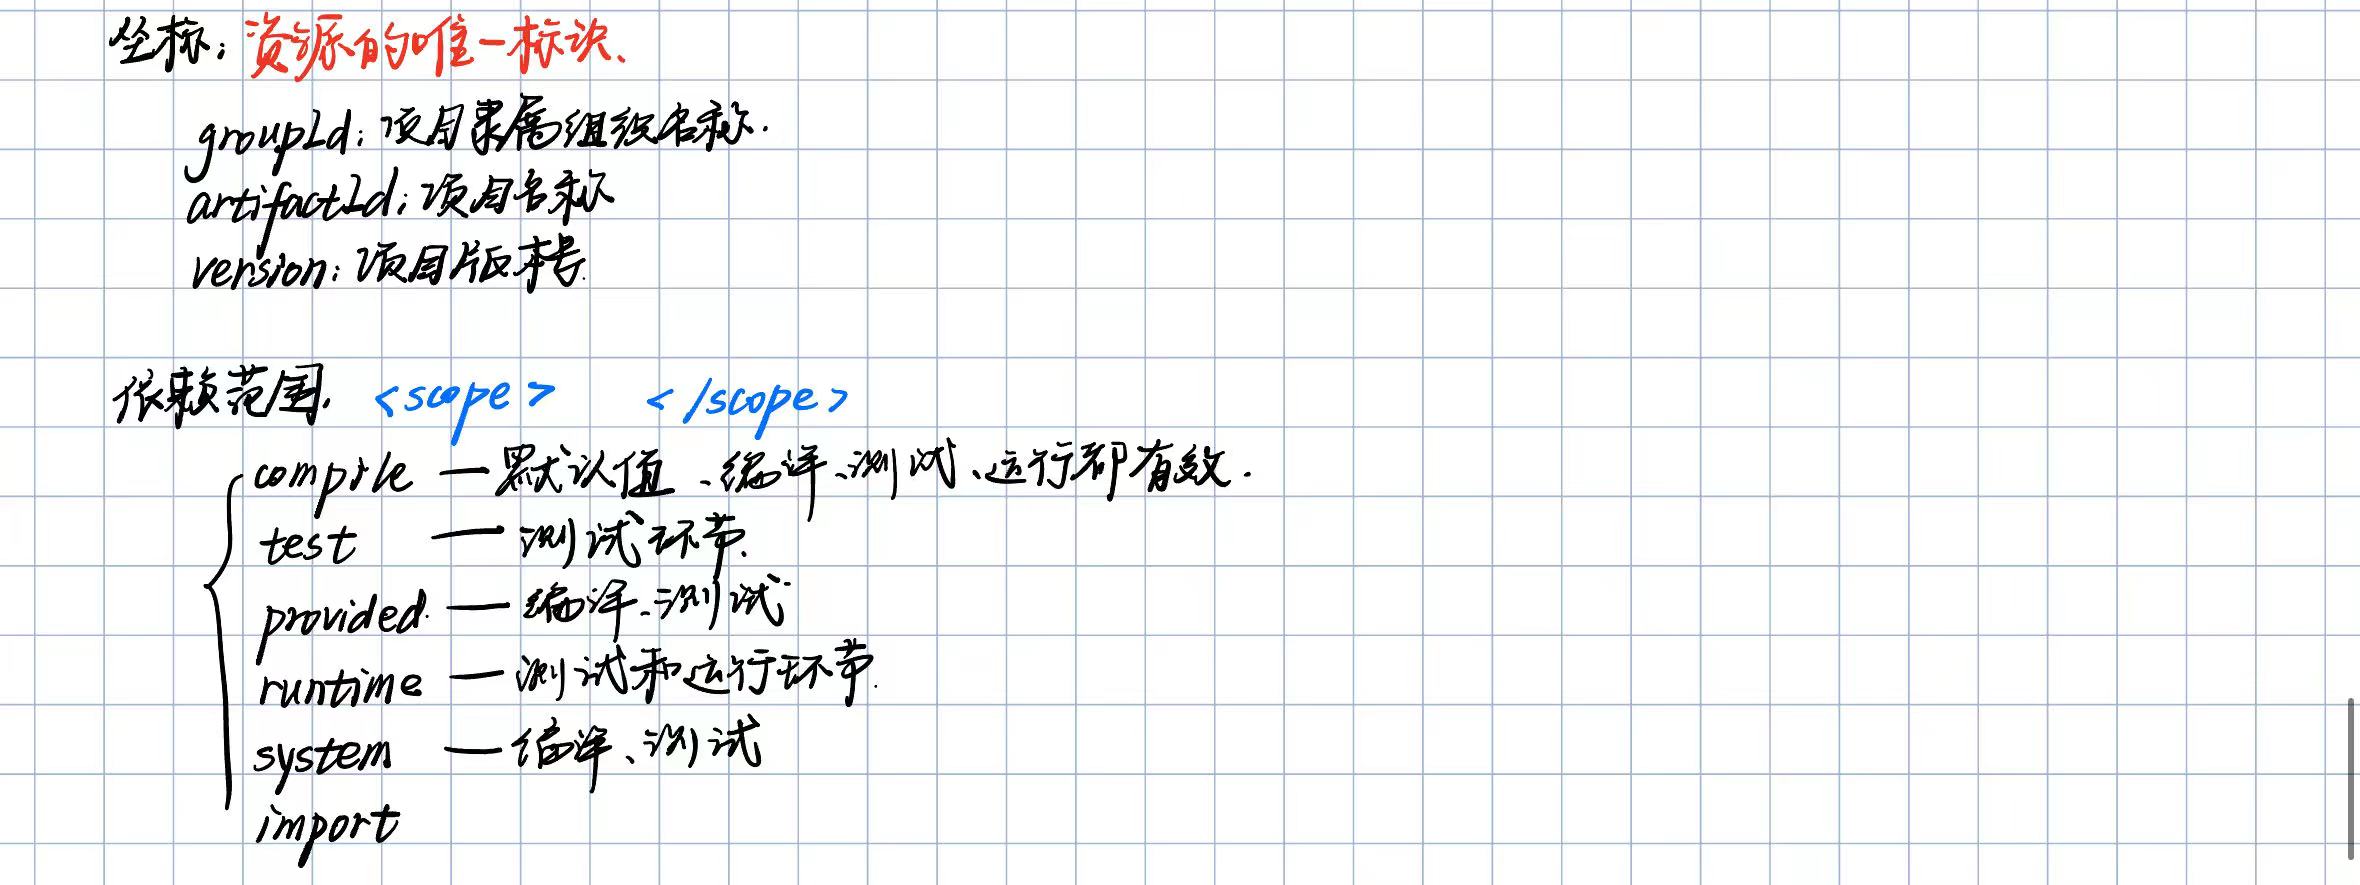 坐标：资源的唯一标识、
groupId：项目隶属组织名称.
artifactId：项目名称
version：项目版本号.
依赖范围. <scope> </scope>
compile — 默认值、编译、测试、运行都有效.
test — 测试环节.
provided. — 编译、测试
runtime — 测试和运行环节.
system — 编译、测试
import